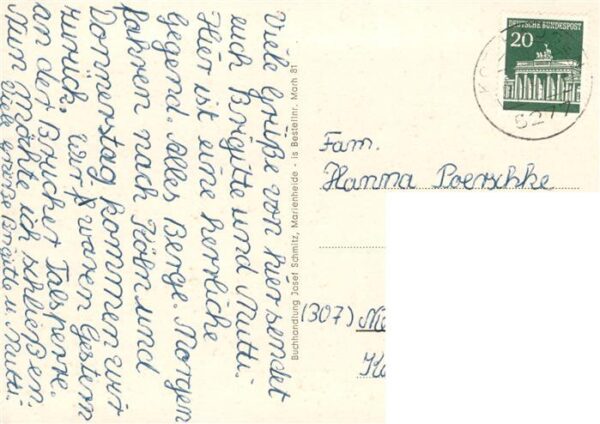 Viele Grüße von hier sendet
euch Brigitte und Mutti.
Hier ist eine herrliche
Gegend. Alles Berge. Morgen
fahren nach Köln und
Donnerstag kommen wir
zurück. Wir waren Gestern
an der Brucher Talsperre.
Nun möchte ich schließen.
Viele Grüße Brigitte u. Mutti
Buchhandlung Josef Schmitz, Marienheide - is Bestellnr. Mach 81
DEUTSCHE BUNDESPOST
20
5277
Fam.
Hanna Poerschke
(307)